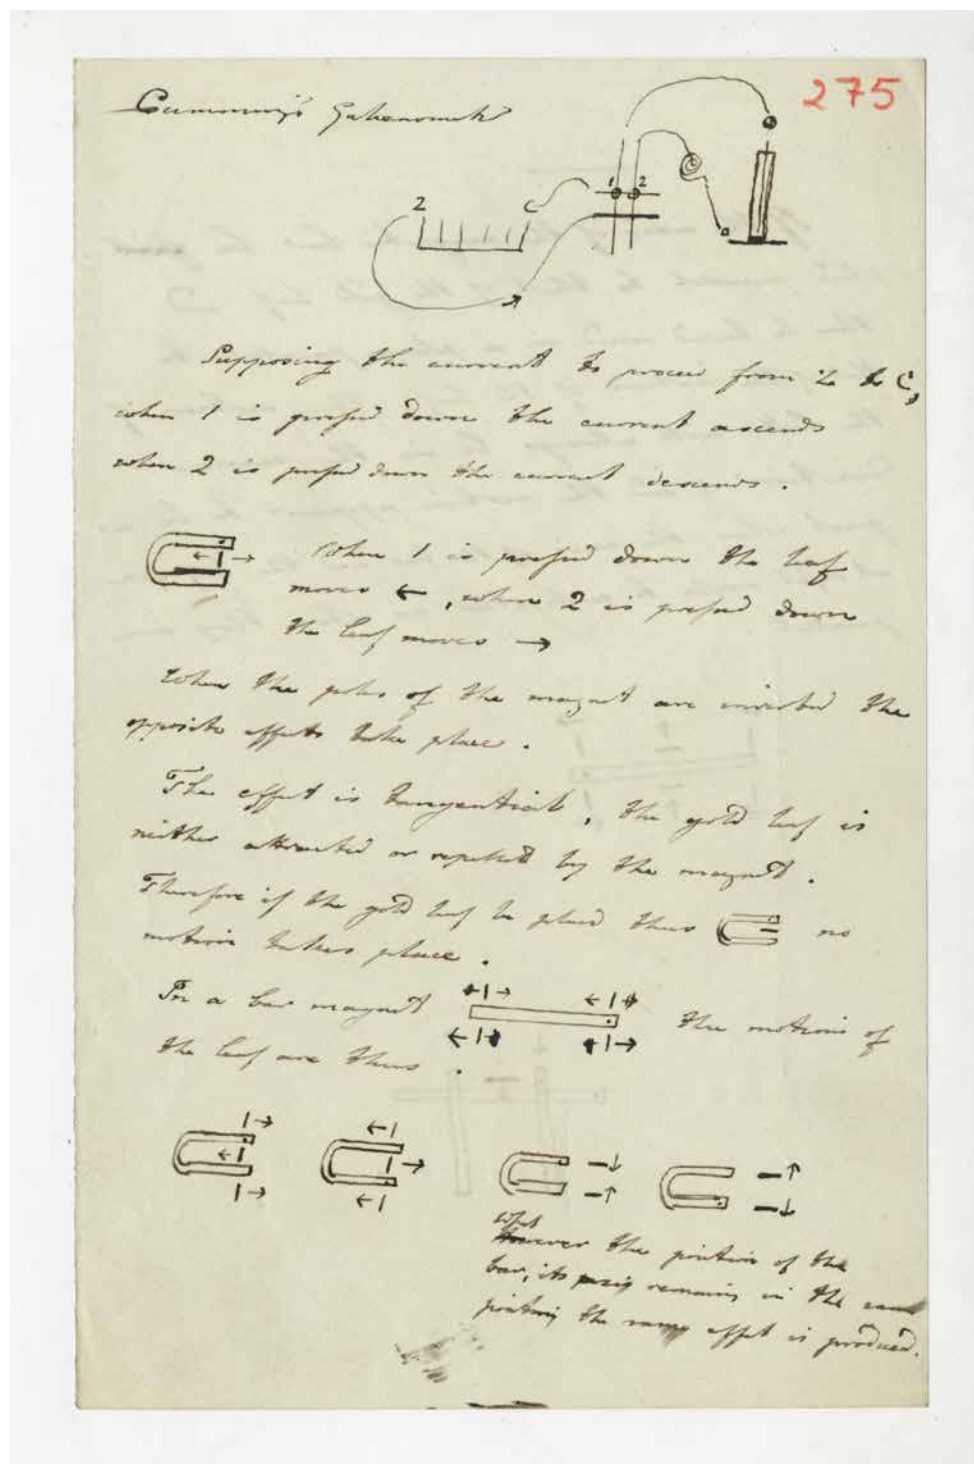 275
Cumming's Galvanomet
1 2
Z C
Supposing the current to proceed from Z to C,
when 1 is pressed down the current ascends
when 2 is pressed down the current descends.
When 1 is pressed down the leaf
moves ←, when 2 is pressed down
the leaf moves →
When the poles of the magnet are inverted the
opposite effects take place.
The effect is tangential, the gold leaf is
neither attracted or repelled by the magnet.
Therefore if the gold leaf be placed thus no
motion takes place.
In a bar magnet the motions of
the leaf are thus.
what
ever the position of the
bar, its remaining in the same
position the same effect is produced.